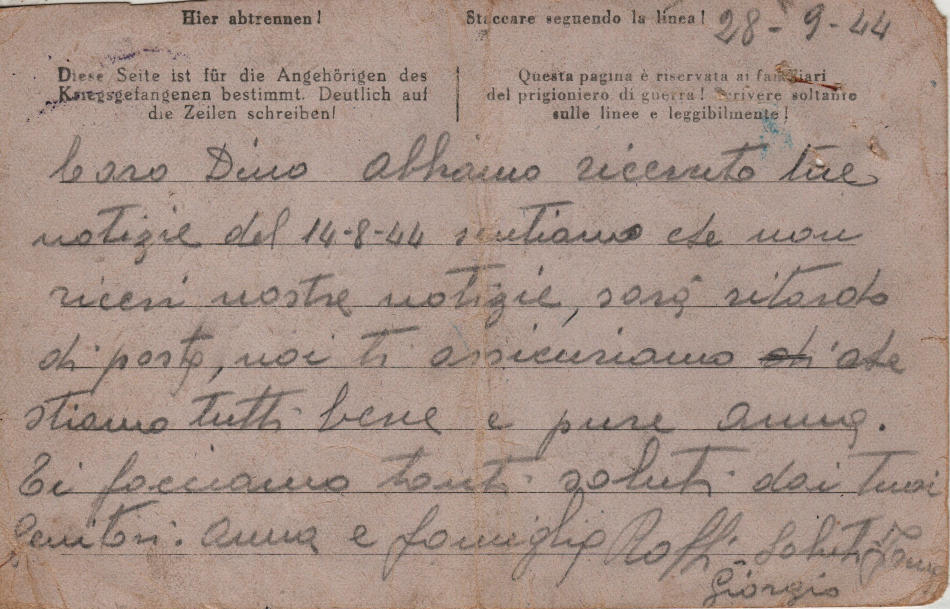 Hier abtrennen!
Staccare seguendo la linea!
28-9-44
Diese Seite ist für die Angehörigen des
Kriegsgefangenen bestimmt. Deutlich auf
die Zeilen schreiben!
Questa pagina è riservata ai familiari
del prigioniero di guerra! Scrivere soltanto
sulle linee e leggibilmente!
Caro Dino abbiamo ricevuto tue
notizie del 14-8-44 sentiamo che non
ricevi nostre notizie, sarà ritardo
di posta, noi ti assicuriamo che
stiamo tutti bene e pure Anna.
Ti facciamo tanti saluti dai tuoi
Genitori. Anna e famiglia Saluti
Giorgio